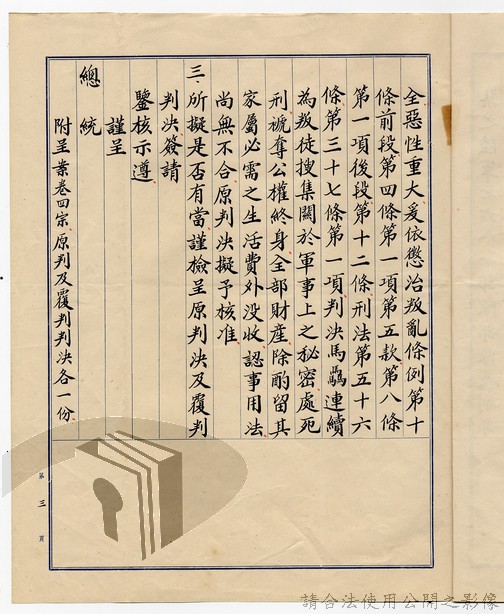 全惡性重大爰依懲治叛亂條例第十
條前段第四條第一項第五款第八條
第一項後段第十二條刑法第五十六
條第三十七條第一項判決馬驫連續
為叛徒搜集關於軍事上之秘密處死
刑褫奪公權終身全部財產除酌留其
家屬必需之生活費外沒收認事用法
尚無不合原判決擬予核准
三、所擬是否有當謹檢呈原判決及覆判
判決簽請
鑒核示遵
謹呈
總統
附呈案卷四宗原判及覆判判決各一份
第三頁
請合法使用公開之影像